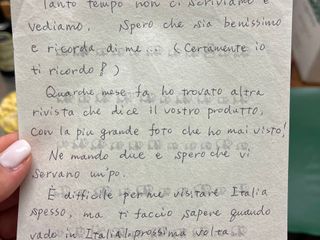 Tanto tempo non ci scriviamo e
vediamo. Spero che sia benissimo
e ricorda di me... (Certamente io
ti ricordo!)
Quarche mese fa, ho trovato altra
rivista che dice il vostro produtto,
con la più grande foto che ho mai visto!
Ne mando due e spero che vi
servano un'po.
È difficile per me visitare Italia
spesso, ma ti faccio sapere quando
vado in Italia prossima volta.